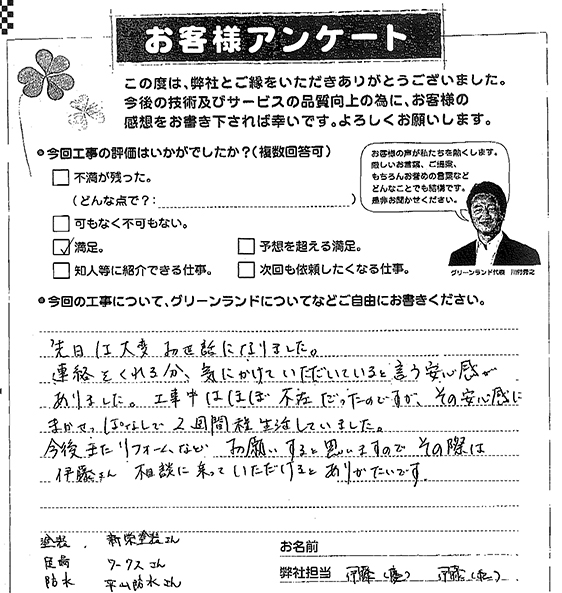 お客様アンケート
この度は、弊社とご縁をいただきありがとうございました。
今後の技術及びサービスの品質向上の為に、お客様の
感想をお書き下されば幸いです。よろしくお願いします。
●今回工事の評価はいかがでしたか?(複数回答可)
□不満が残った。
(どんな点で?: )
□可もなく不可もない。
☑満足。 □予想を超える満足。
□知人等に紹介できる仕事。 □次回も依頼したくなる仕事。
お客様の声が私たちを動くします。
厳しいお言葉、ご提案、
もちろんお誉めの言葉など
どんなことでも結構です。
是非お聞かせください。
グリーンランド代表
●今回の工事について、グリーンランドについてなどご自由にお書きください。
先日は大変お世話になりました。
連絡をくれる分、気にかけていただいていると言う安心感が
ありました。工事中はほぼ不在だったのですが、その安心感に
まかせっぱなしで2週間程生活していました。
今後またリフォームなどお願いすると思いますのでその際は
伊藤さん 相談に来っていただけるとありがたいです。
塗装、新栄塗装さん
ワークスさん
防水 平山防水さん
お名前
弊社担当 伊藤 伊藤